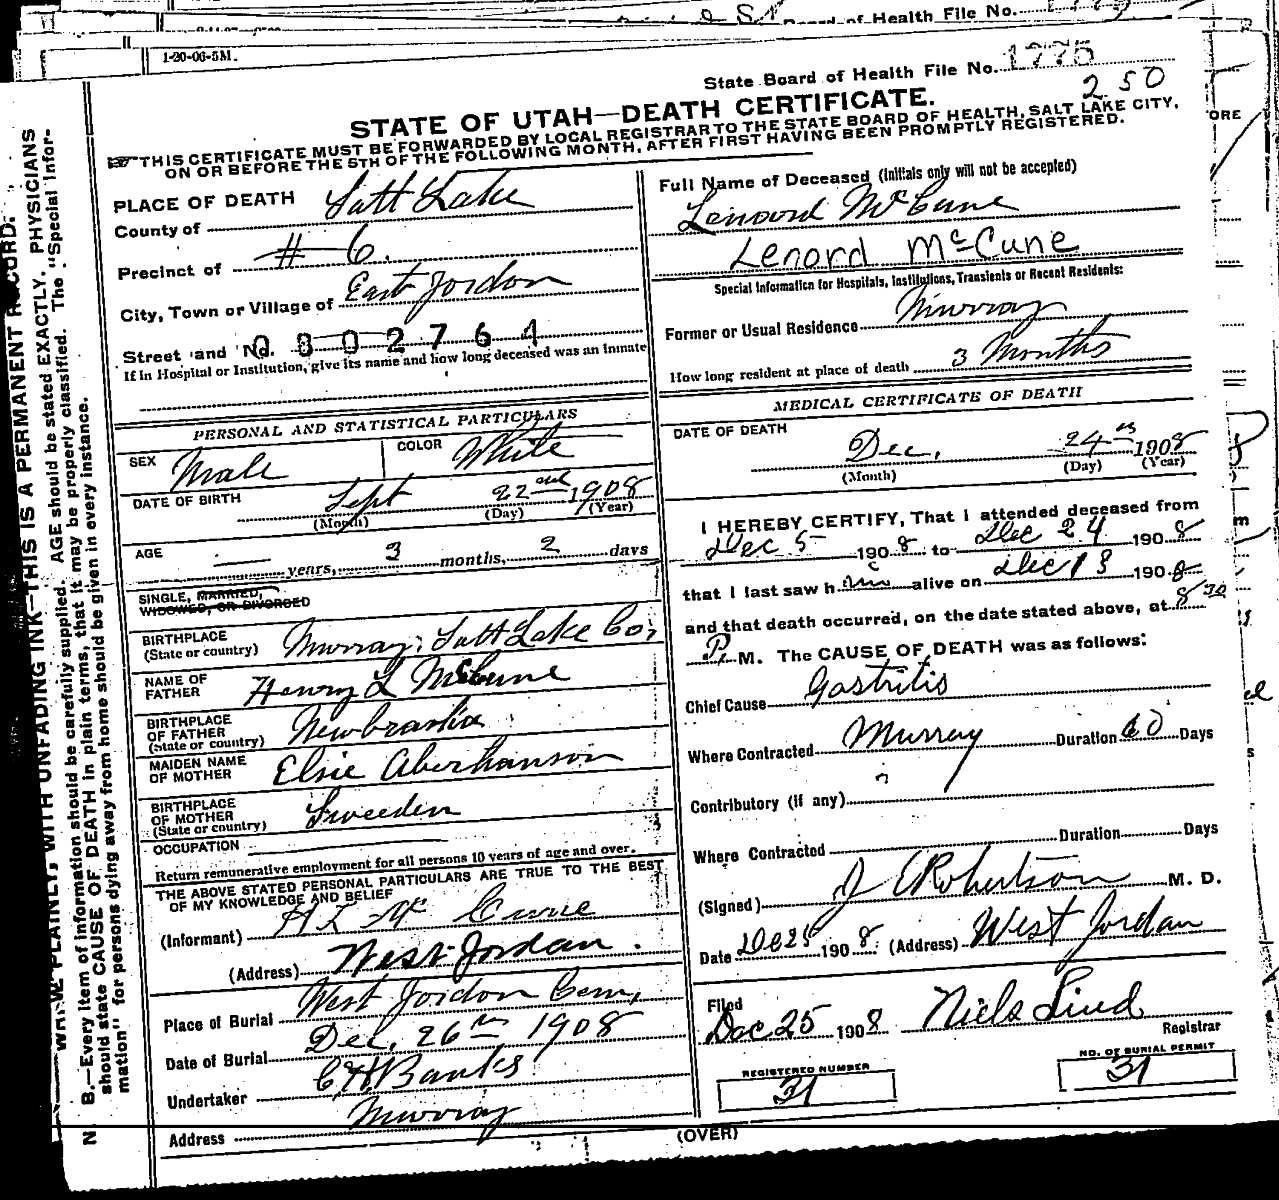 Board of Health File No.
1-20-06-5M.
State Board of Health File No. 1775
250
STATE OF UTAH—DEATH CERTIFICATE.
THIS CERTIFICATE MUST BE FORWARDED BY LOCAL REGISTRAR TO THE STATE BOARD OF HEALTH, SALT LAKE CITY,
ON OR BEFORE THE 5TH OF THE FOLLOWING MONTH, AFTER FIRST HAVING BEEN PROMPTLY REGISTERED.
N. B.—Every item of information should be carefully supplied. AGE should be stated EXACTLY. PHYSICIANS
should state CAUSE OF DEATH in plain terms, that it may be properly classified. The "Special Infor-
mation" for persons dying away from home should be given in every instance.
PLAINLY, WITH UNFADING INK—THIS IS A PERMANENT RECORD.
PLACE OF DEATH
County of Salt Lake
Precinct of # 6.
City, Town or Village of East Jordon
Street and No. 0802764
If in Hospital or Institution, give its name and how long deceased was an inmate
PERSONAL AND STATISTICAL PARTICULARS
SEX Male COLOR White
DATE OF BIRTH Sept 22nd 1908
(Month) (Day) (Year)
AGE — years, 3 months, 2 days
SINGLE, MARRIED,
WIDOWED, OR DIVORCED
BIRTHPLACE
(State or country) Murray, Salt Lake Co,
NAME OF
FATHER Henry L McCune
BIRTHPLACE
OF FATHER
(State or country) Newbraska
MAIDEN NAME
OF MOTHER Elsie Aberhanson
BIRTHPLACE
OF MOTHER
(State or country) Sweeden
OCCUPATION
Return remunerative employment for all persons 10 years of age and over.
THE ABOVE STATED PERSONAL PARTICULARS ARE TRUE TO THE BEST
OF MY KNOWLEDGE AND BELIEF
(Informant) H L McCune
(Address) West Jordan.
Place of Burial West Jordon Cem,
Date of Burial Dec, 26th 1908
Undertaker C.H. Banks
Address Murray
Full Name of Deceased (Initials only will not be accepted)
Lenourd McCune
Lenord McCune
Special Information for Hospitals, Institutions, Transients or Recent Residents:
Former or Usual Residence Murray
How long resident at place of death 3 Months
MEDICAL CERTIFICATE OF DEATH
DATE OF DEATH
Dec, 24 1908
(Month) (Day) (Year)
I HEREBY CERTIFY, That I attended deceased from
Dec 5 1908 to Dec 24 1908
that I last saw him alive on Dec 18 1908
and that death occurred, on the date stated above, at 8 30
P. M. The CAUSE OF DEATH was as follows:
Chief Cause Gastritis
Where Contracted Murray Duration 60 Days
Contributory (if any)
Where Contracted Duration Days
(Signed) J Robertson M. D.
Date Dec 25 1908. (Address) West Jordan
Filed
Dec. 25 1908 Niels Lind
Registrar
REGISTERED NUMBER
31
NO. OF BURIAL PERMIT
31
(OVER)